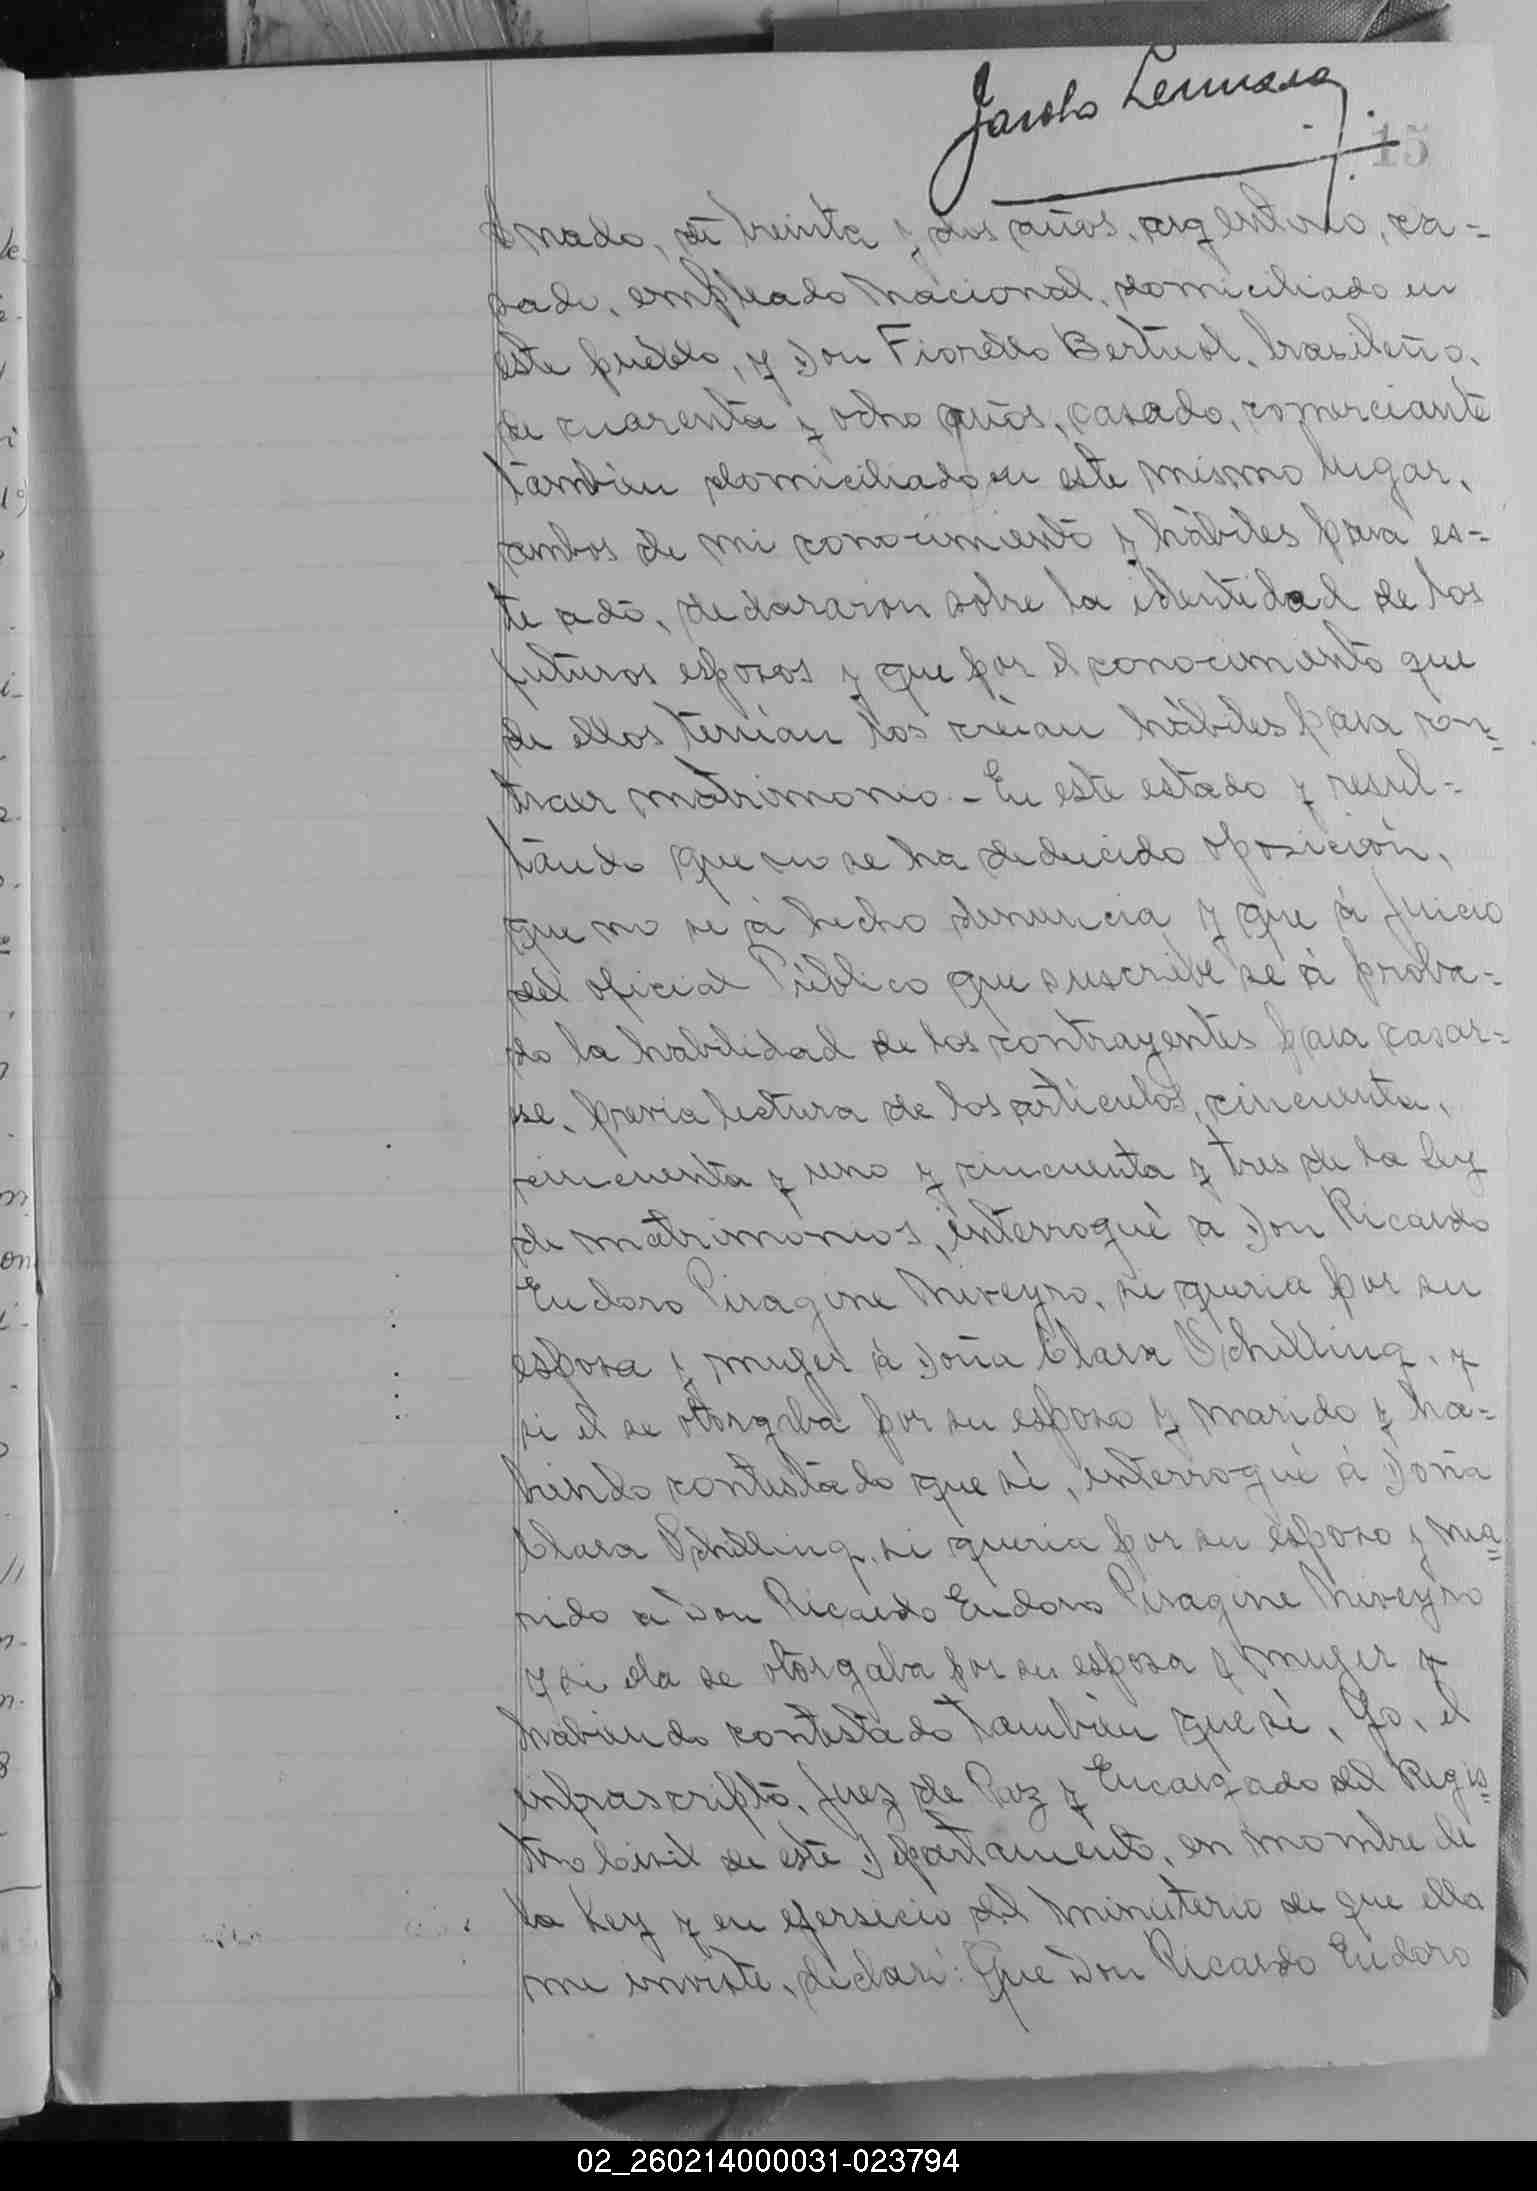 Jacobo
15
Amado, de treinta y dos años, argentino, ca-
sado, empleado Nacional, domiciliado en
este pueblo, y Don Fiorello Bertuol, brasileño,
de cuarenta y ocho años, casado, comerciante
también domiciliado en este mismo lugar,
ambos de mi conocimiento y hábiles para es-
te acto, declararon sobre la identidad de los
futuros esposos y que por el conocimiento que
de ellos tenían los creían hábiles para con-
traer matrimonio.- En este estado y resul-
tando que no se ha deducido oposición,
que no se á hecho denuncia y que á juicio
del oficial Público que suscribe se á proba-
do la habilidad de los contrayentes para casar-
se, previa lectura de los artículos, cincuenta,
cincuenta y uno y cincuenta y tres de la ley
de matrimonios, interrogué a Don Ricardo
Eudoro Piragine Niveyro, si queria por su
esposa y mujer á Doña Clara Schilling, y
si el se otorgaba por su esposo y marido y ha-
biendo contestado que sí, interrogué á Doña
Clara Schilling, si queria por su esposo y ma-
rido a Don Ricardo Eudoro Piragine Niveyro
y si ela se otorgaba por su esposa y mujer y
habiendo contestado también que sí, Yo, el
infrascripto, Juez de Paz y Encargado del Regis-
tro Civil de este Departamento, en nombre de
la Ley y en ejersicio del ministerio de que ella
me inviste, declaré: Que Don Ricardo Eudoro
02_260214000031-023794